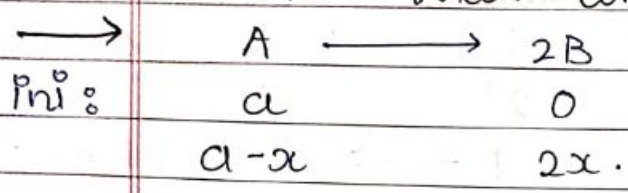 → A → 2B
ini: a 0
a-x 2x.